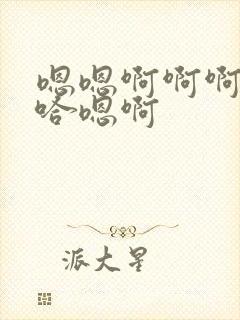 嗯嗯啊啊啊
哈嗯啊
派大星